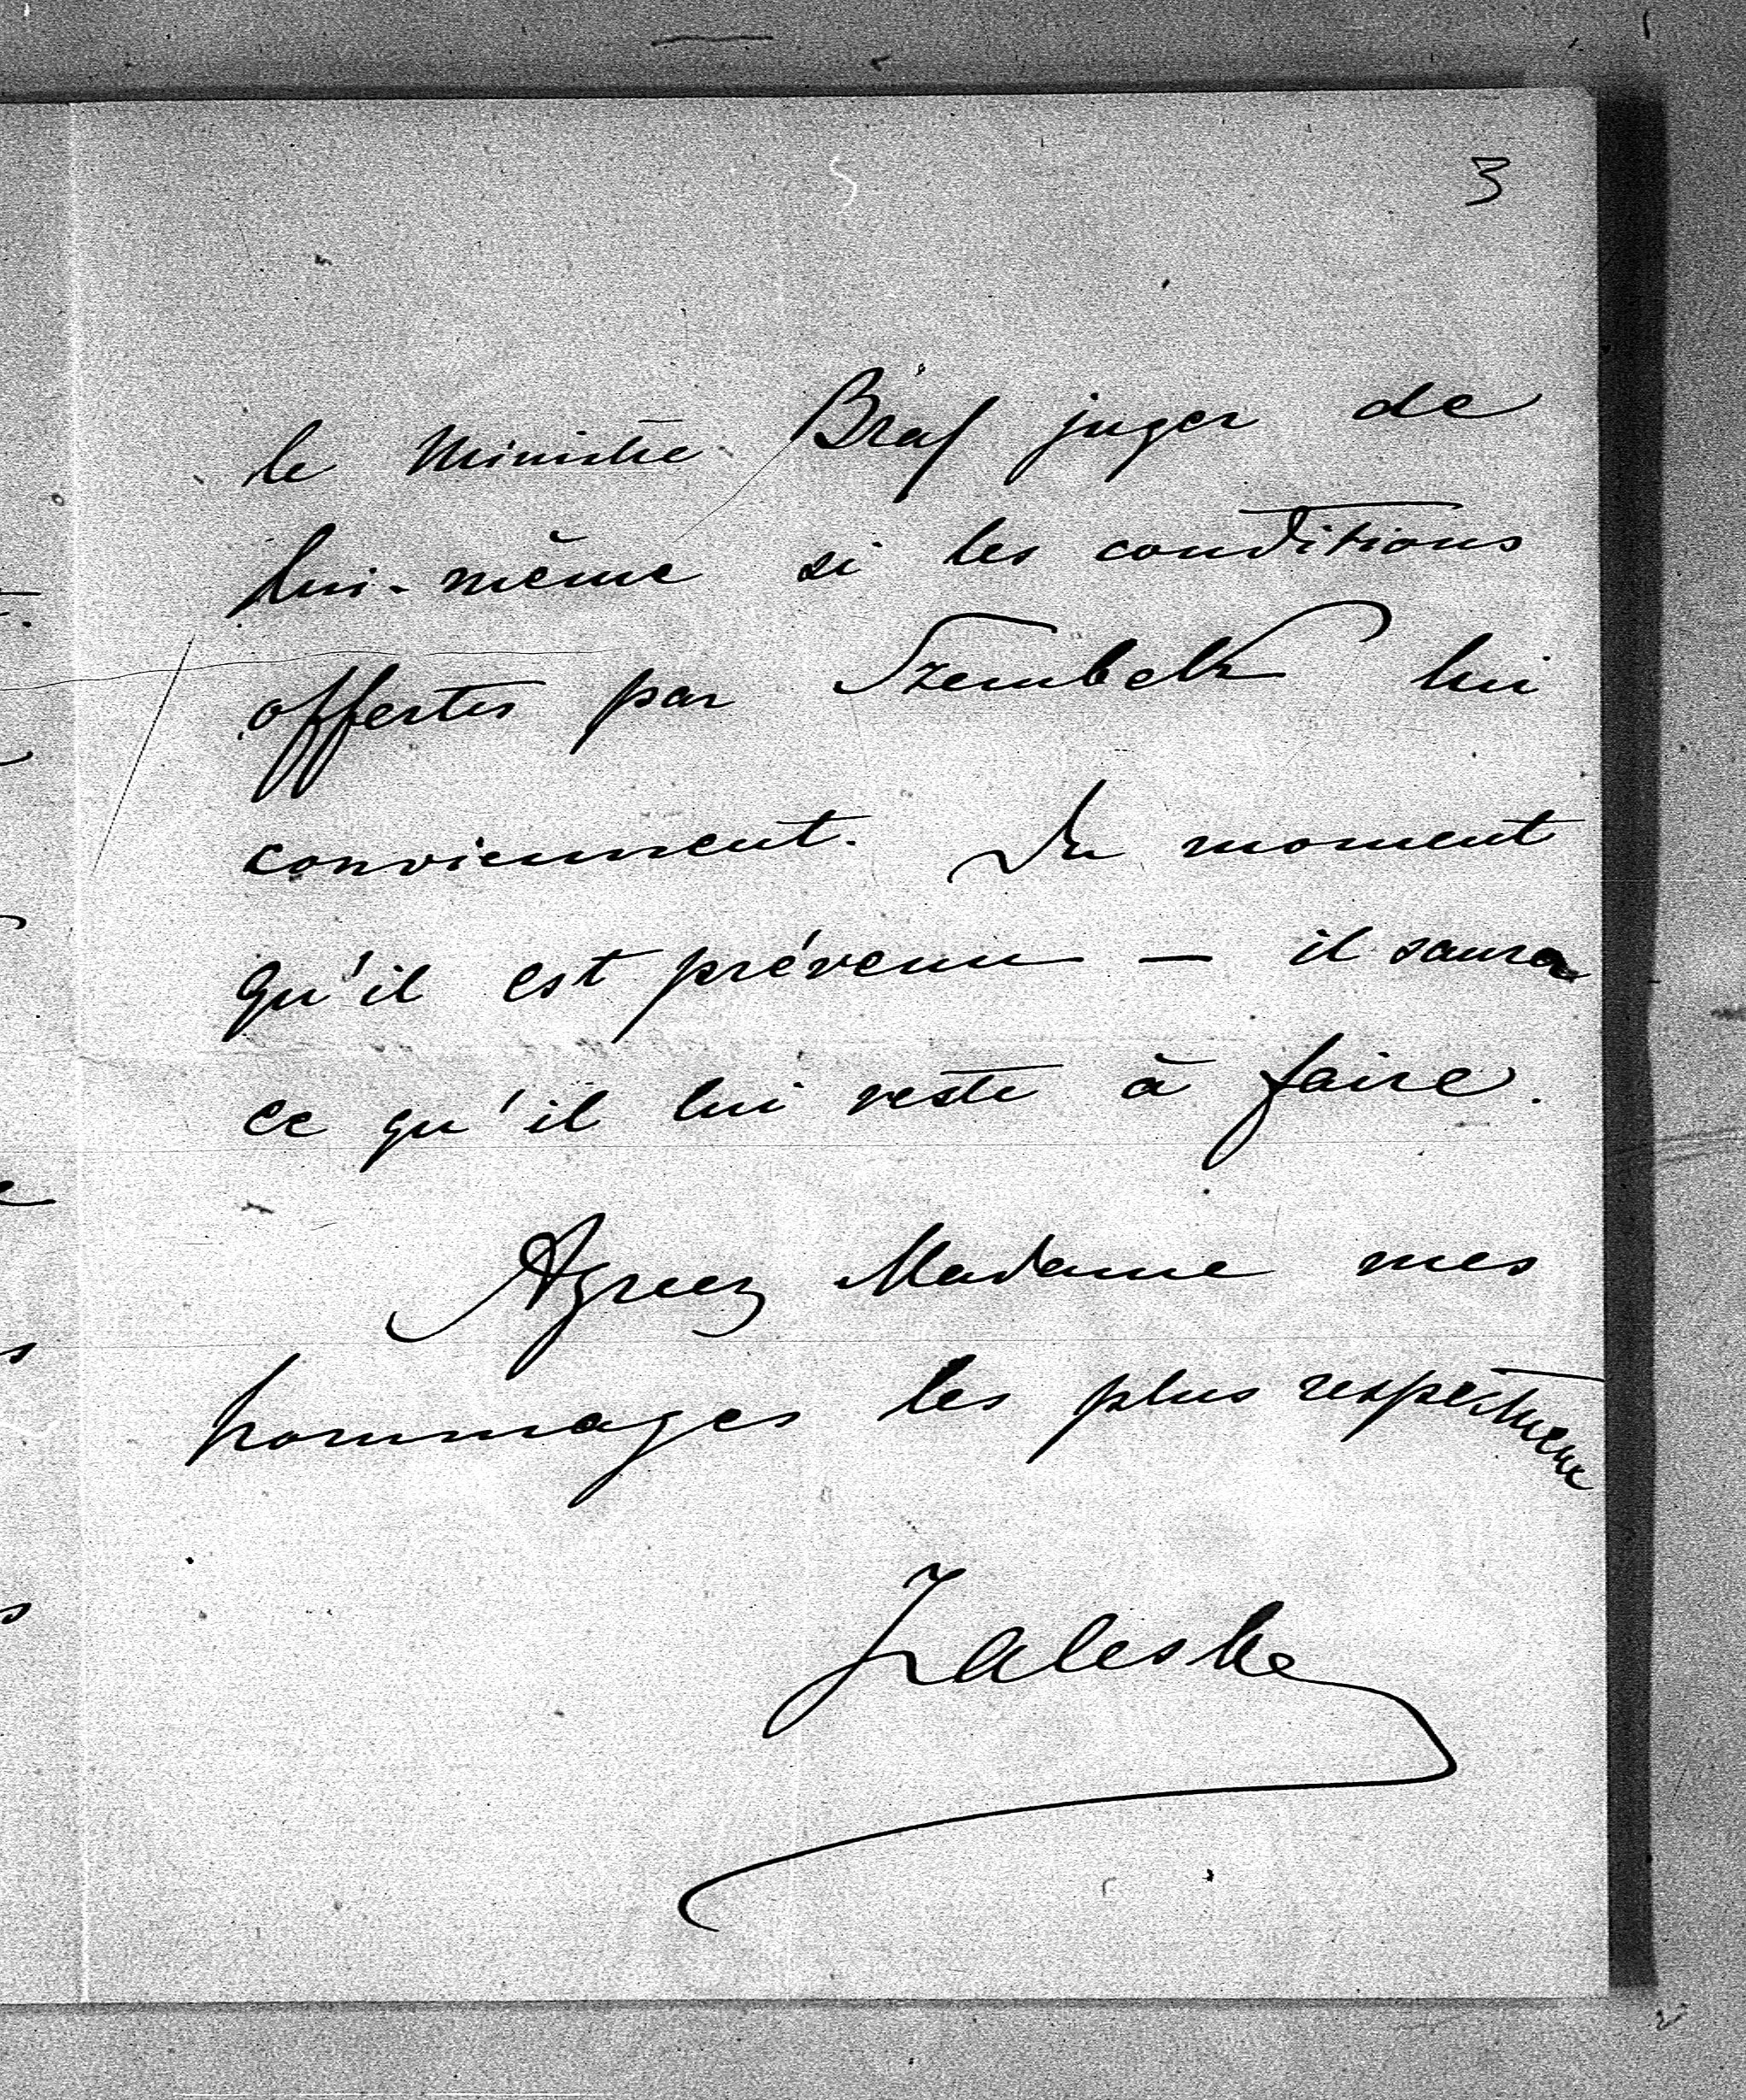 3
le Ministre Braf juger de
lui-même si les conditions
offertes par Szembek lui
conviennent. Du moment
qu'il est prévenu — il saura
ce qu'il lui reste à faire.
Agreez Madame mes
hommages les plus respectueux
Zaleske